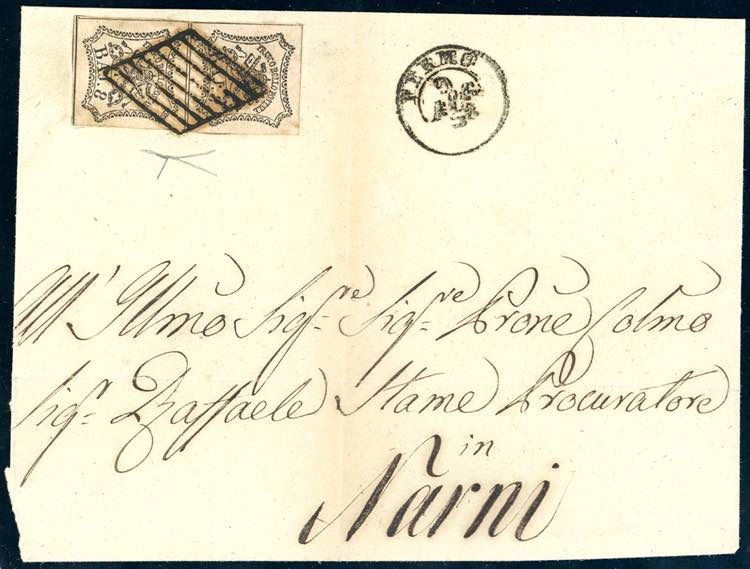 BAJ 8
FRANCO BOLLO POSTALE
FERMO
All' Illmo Sigre Sigre Prone Colmo
Sigr Raffaele Stame Procuratore
in
Narni